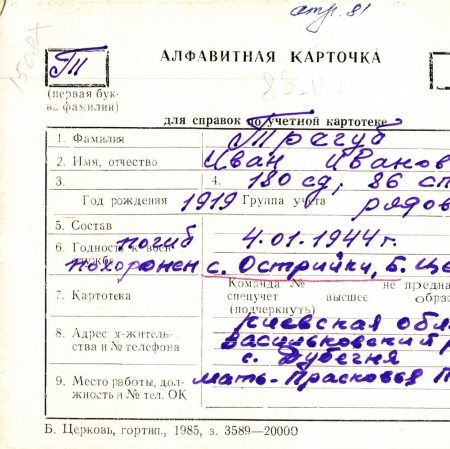 стр. 81
15087
Т
АЛФАВИТНАЯ КАРТОЧКА
(первая бук-
ва фамилии)
для справок по учетной картотеке
1. Фамилия Трегуб
2. Имя, отчество Иван Иванов
3. 4. 180 сд, 86 сп
Год рождения 1919 Группа учета рядов
5. Состав погиб 4.01.1944 г.
6. Годность к воен-
службе похоронен с. Острийки, Б. Це
Команда № не предна
7. Картотека спецучет высшее образ
(подчеркнуть)
киевская обл
8. Адрес м-житель- Васильковский р
ства и № телефона с. Дубегня
9. Место работы, дол- мать - Прасковья П
жность и № тел. ОК
Б. Церковь, гортип., 1985, з. 3589—20000